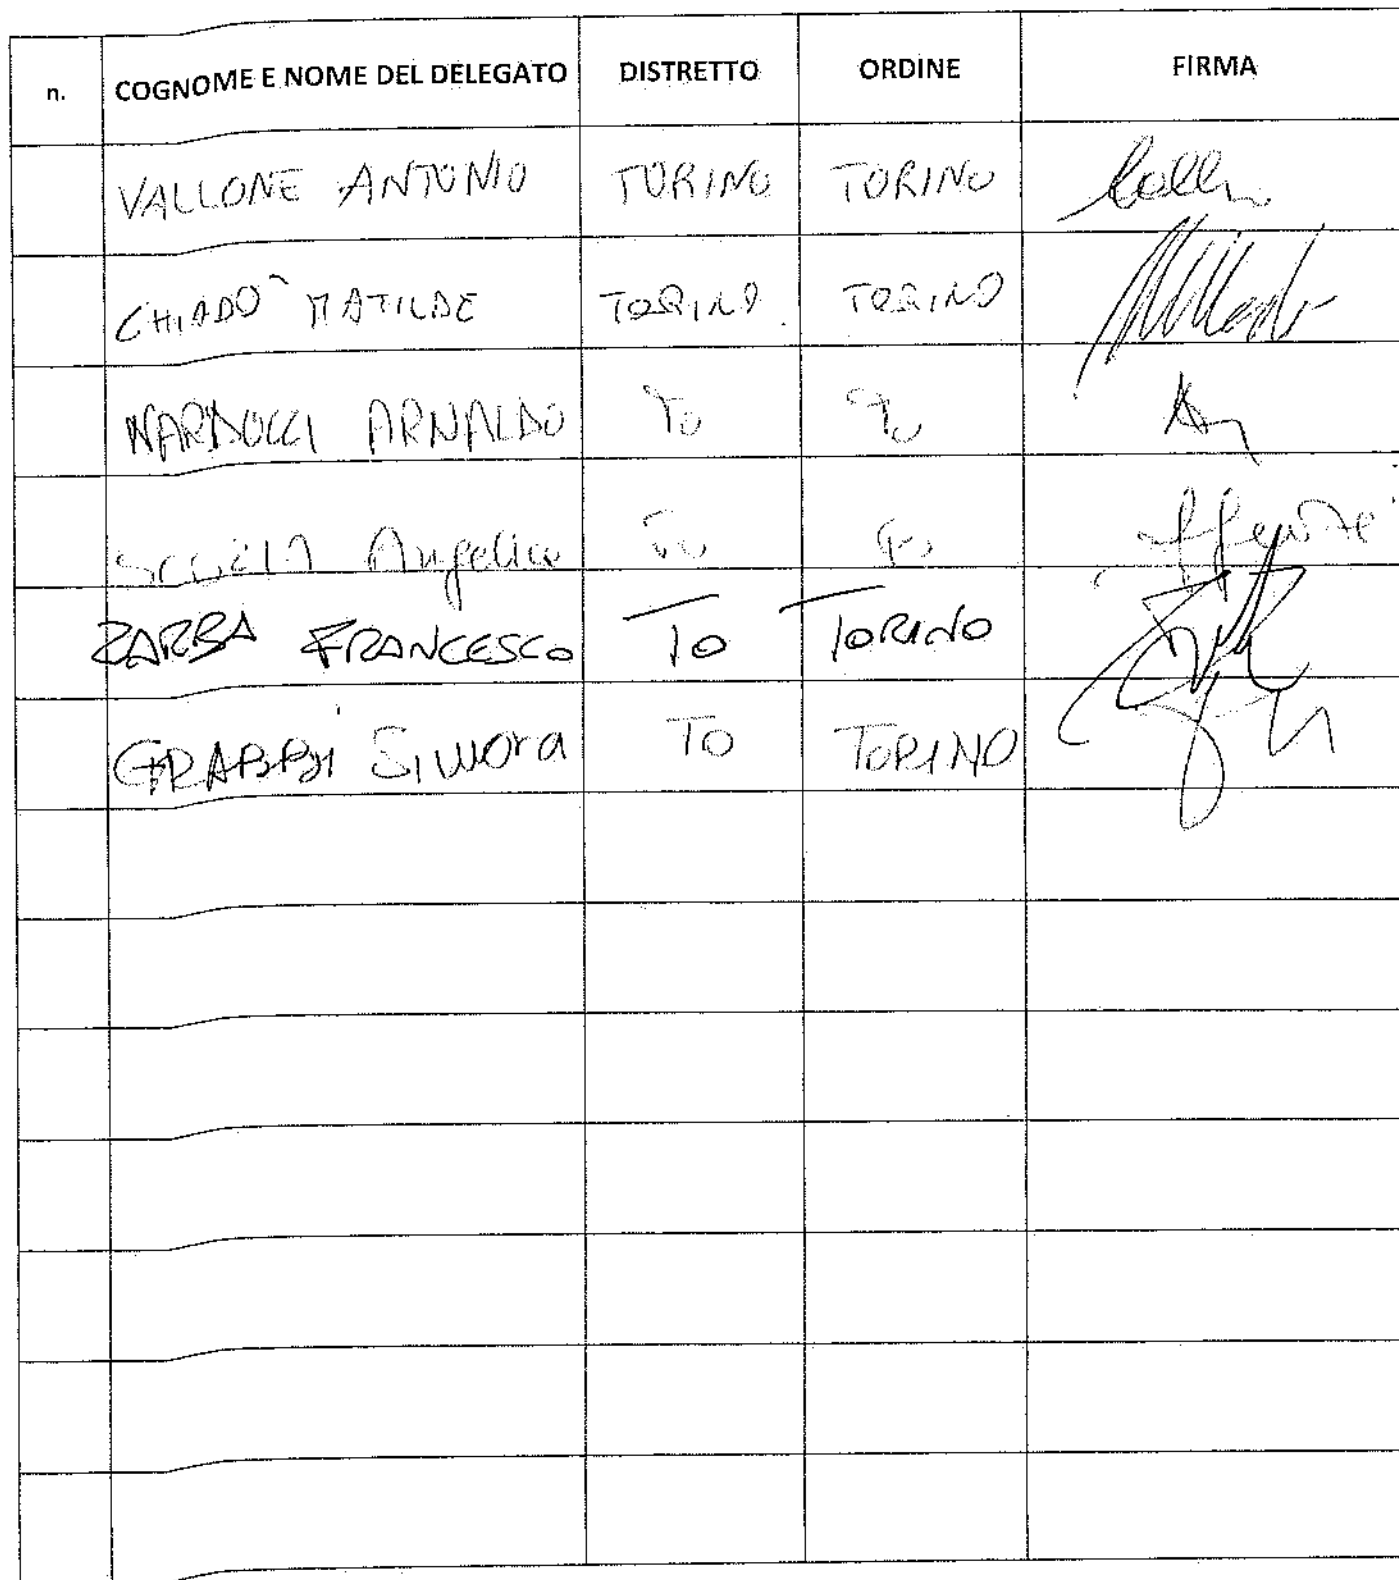 n. COGNOME E NOME DEL DELEGATO DISTRETTO ORDINE FIRMA
VALLONE ANTONIO TORINO TORINO
CHIADO` MATILDE TORINO TORINO
NARDUCCI ARNALDO To To
Angelica To To
ZARBA FRANCESCO TO TORINO
GRABBI Simona TO TORINO